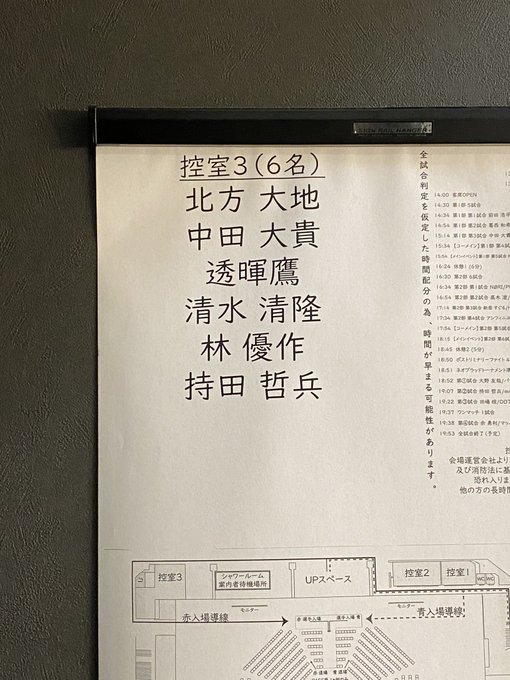 控室3(6名)
北方 大地
中田 大貴
透暉鷹
清水 清隆
林 優作
持田 哲兵
全試合判定を仮定した時間配分の為、時間が早まる可能性があります。
14:00 客席OPEN
14:30 第1部 5試合
14:34 第1部 第1試合 前田 浩平
14:54 第1部 第2試合 葛西 和希
15:14 第1部 第3試合 中田 大貴
15:34 【コーメイン】第1部 第4試
15:54 【メインイベント】第1部 第5試合
16:24 休憩1 (6分)
16:30 第2部 6試合
16:34 第2部 第1試合 NØRI/P
16:54 第2部 第2試合 高木 凌/
17:14 第2部 第3試合
17:34 第2部 第4試合
17:54 【コーメイン】第2部 第5試
18:15 【メインイベント】第2部 第6試
18:45 休憩2 (5分)
18:50 ポストリミナリーファイト 4
18:51 ネオブラッドトーナメント準
18:52 第①試合 大野 友哉/
19:07 第②試合 持田 哲兵/
19:22 第③試合 田嶋 椋/DOT
19:37 ワンマッチ 1試合
19:38 第④試合 余 勇利/マッ
19:53 全試合終了(予定)
会場運営会社より
及び消防法に基
恐れ入りま
他の方の長時間
控室3
シャワールーム
案内者待機場所
UPスペース
控室2
控室1
WC
WC
モニター
モニター
赤入場導線
赤 選手入場
選手入場 青
青入場導線
赤 道場
青 道場